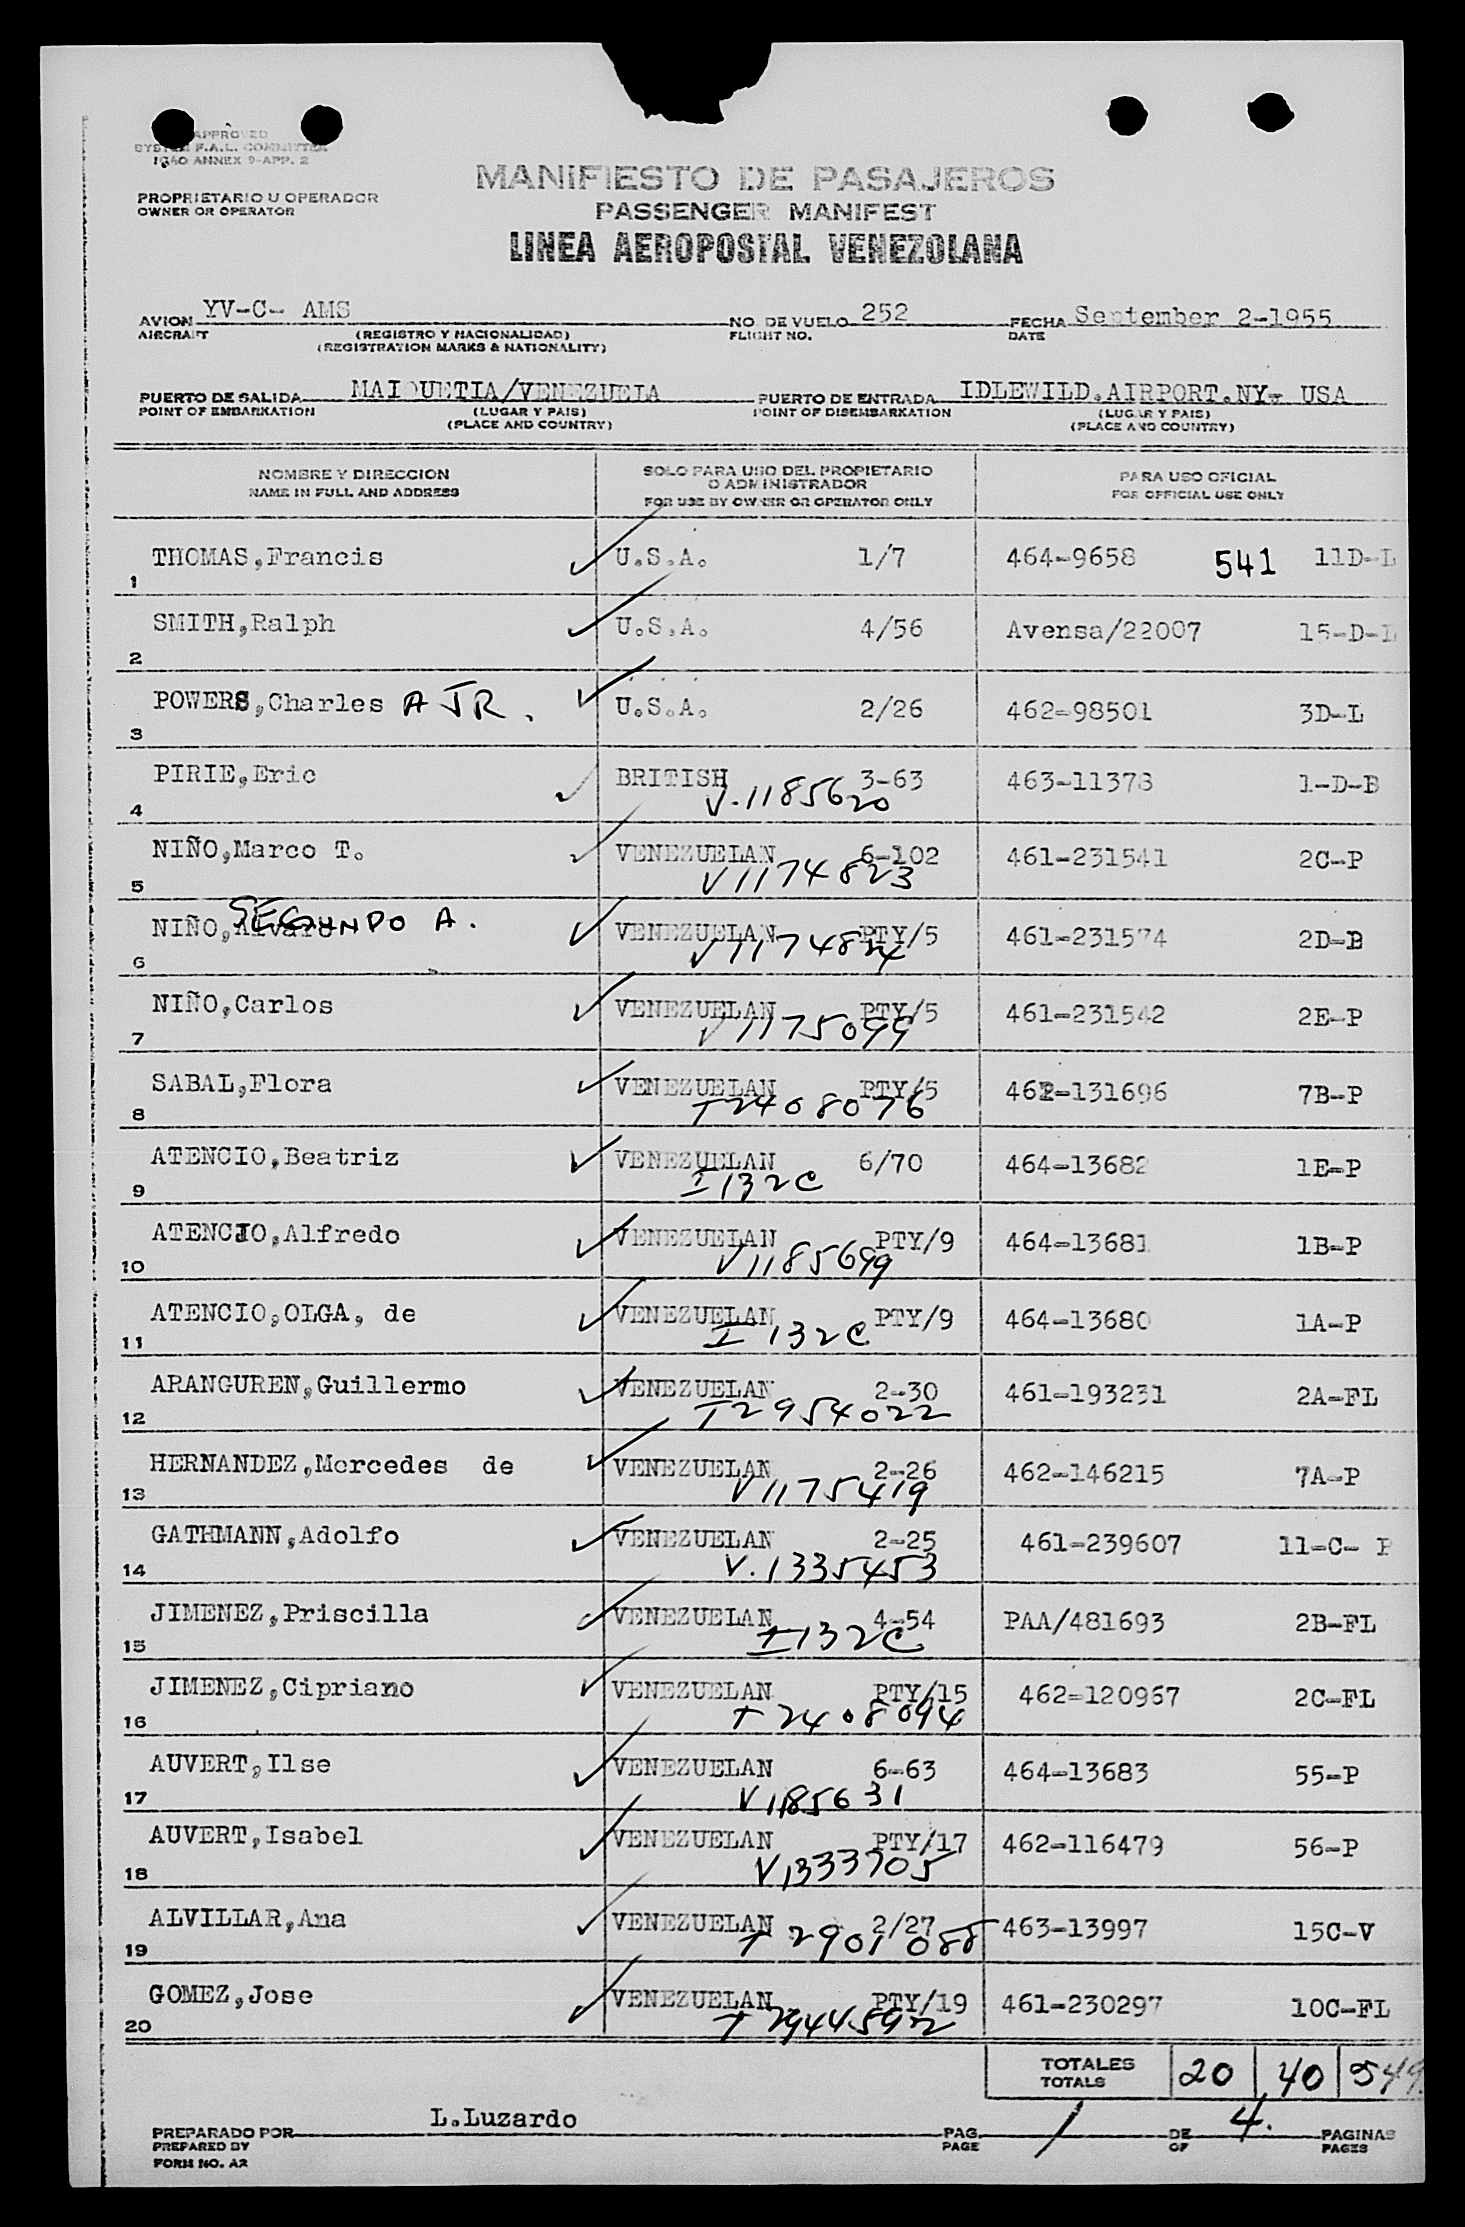 APPROVED
SYSTEM F.A.L. COMMITTEE
ICAO ANNEX 9-APP. 2
PROPRIETARIO U OPERADOR
OWNER OR OPERATOR
MANIFIESTO DE PASAJEROS
PASSENGER MANIFEST
LINEA AEROPOSTAL VENEZOLANA
AVION YV-C- AMS NO. DE VUELO 252 FECHA September 2-1955
AIRCRAFT (REGISTRO Y NACIONALIDAD) FLIGHT NO. DATE
(REGISTRATION MARKS & NATIONALITY)
PUERTO DE SALIDA MAIQUETIA/VENEZUELA PUERTO DE ENTRADA IDLEWILD.AIRPORT.NY- USA
POINT OF EMBARKATION (LUGAR Y PAIS) POINT OF DISEMBARKATION (LUGAR Y PAIS)
(PLACE AND COUNTRY) (PLACE AND COUNTRY)
NOMBRE Y DIRECCION SOLO PARA USO DEL PROPIETARIO PARA USO OFICIAL
O ADMINISTRADOR
NAME IN FULL AND ADDRESS FOR USE BY OWNER OR OPERATOR ONLY FOR OFFICIAL USE ONLY
1 THOMAS,Francis U.S.A. 1/7 464-9658 541 11D-L
2 SMITH,Ralph U.S.A. 4/56 Avensa/22007 15-D-L
3 POWERS,Charles A JR. U.S.A. 2/26 462-98501 3D-L
4 PIRIE,Eric BRITISH 3-63 463-11378 1-D-B
V.1185620
5 NIÑO,Marco T. VENEZUELAN 6-102 461-231541 2C-P
V1174823
6 NIÑO,Alvaro SEGUNDO A. VENEZUELAN PTY/5 461-231574 2D-B
V1174824
7 NIÑO,Carlos VENEZUELAN PTY/5 461-231542 2E-P
V1175099
8 SABAL,Flora VENEZUELAN PTY/5 462-131696 7B-P
T2408076
9 ATENCIO,Beatriz VENEZUELAN 6/70 464-13682 1E-P
I132C
10 ATENCIO,Alfredo VENEZUELAN PTY/9 464-13681 1B-P
V1185699
11 ATENCIO,OLGA, de VENEZUELAN PTY/9 464-13680 1A-P
I132C
12 ARANGUREN,Guillermo VENEZUELAN 2-30 461-193231 2A-FL
T2954022
13 HERNANDEZ,Mercedes de VENEZUELAN 2-26 462-146215 7A-P
V1175419
14 GATHMANN,Adolfo VENEZUELAN 2-25 461-239607 11-C- P
V.1335453
15 JIMENEZ,Priscilla VENEZUELAN 4-54 PAA/481693 2B-FL
I132C
16 JIMENEZ,Cipriano VENEZUELAN PTY/15 462-120967 2C-FL
T2408094
17 AUVERT,Ilse VENEZUELAN 6-63 464-13683 55-P
V1185631
18 AUVERT,Isabel VENEZUELAN PTY/17 462-116479 56-P
V1333705
19 ALVILLAR,Ana VENEZUELAN 2/27 463-13997 15C-V
T2901088
20 GOMEZ,Jose VENEZUELAN PTY/19 461-230297 10C-FL
TOTALES 20 40 549
TOTALS
PREPARADO POR L.Luzardo PAG. 1 DE 4. PAGINAS
PREPARED BY PAGE OF PAGES
FORM NO. A2